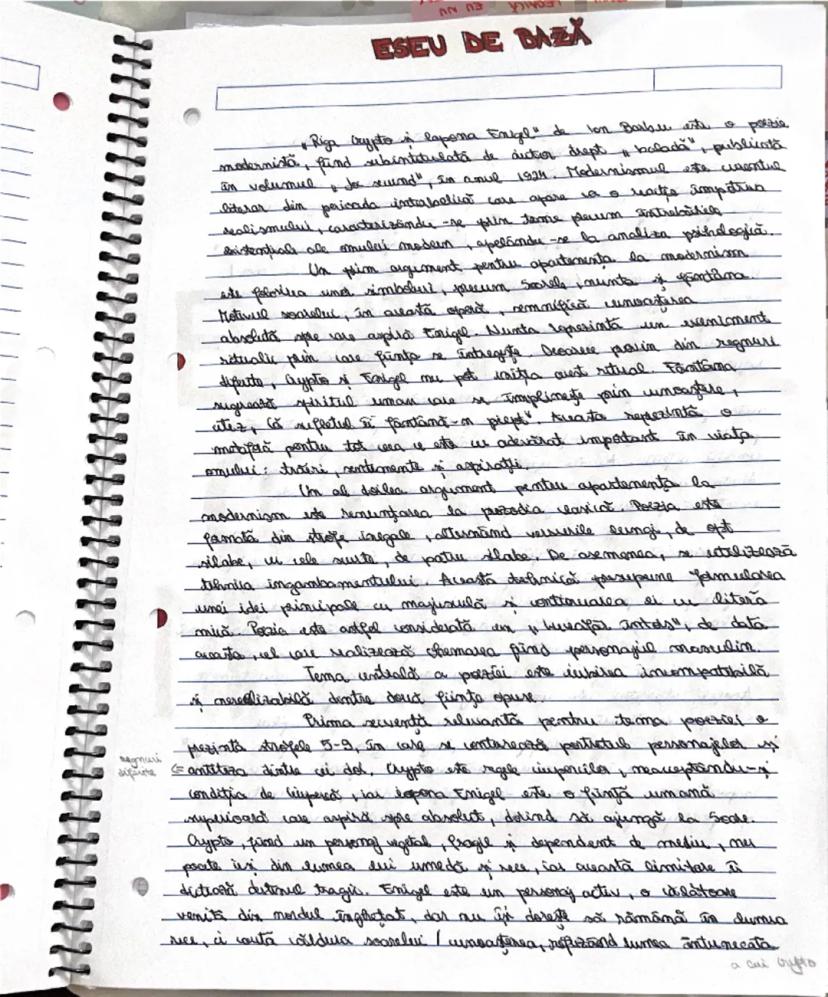 ESEU DE BAZĂ
„Riga Crypto și lapona Enigel" de Ion Barbu este o poezie
modernistă, fiind subintitulată de autor drept „baladă", publicată
în volumul „Joc secund", în anul 1924. Modernismul este curentul
literar din perioada interbelică care apare ca o reacție împotriva
realismului, caracterizându-se prin teme precum întrebările
existențiale ale omului modern, apelându-se la analiza psihologică.
Un prim argument pentru apartenența la modernism
este folosirea unor simboluri, precum Soarele, nunta și fântâna.
Motivul soarelui, în această operă, semnifică cunoașterea
absolută spre care aspiră Enigel. Nunta reprezintă un eveniment
ritualic prin care ființa se întregește. Deoarece provin din regnuri
diferite, Crypto și Enigel nu pot iniția acest ritual. Fântâna
sugerează spiritul uman care se împlinește prin cunoaștere,
citez, „Că sufletul îi fântână-n piept". Aceasta reprezintă o
metaforă pentru tot ceea ce este cu adevărat important în viața
omului: trăiri, sentimente și aspirații.
Un al doilea argument pentru apartenența la
modernism este renunțarea la prozodia clasică. Poezia este
formată din strofe inegale, alternând versurile lungi, de opt
silabe, cu cele scurte, de patru silabe. De asemenea, se utilizează
tehnica ingambamentului. Această tehnică presupune formularea
unei idei principale cu majusculă și continuarea ei cu literă
mică. Poezia este astfel considerată un „Luceafăr întors", de data
aceasta, cel care realizează chemarea fiind personajul masculin.
Tema centrală a poeziei este iubirea incompatibilă
și nerealizabilă dintre două ființe opuse.
Prima secvență relevantă pentru tema poeziei o
prezintă strofele 5-9, în care se conturează portretul personajelor și
regnuri
diferite
⇐ antiteza dintre cei doi. Crypto este regele ciupercilor, neacceptându-și
condiția de ciupercă, iar lapona Enigel este o ființă umană
superioară care aspiră spre absolut, dorind să ajungă la Soare.
Crypto, fiind un personaj vegetal, fragil și dependent de mediu, nu
poate ieși din lumea lui umedă și rece, iar această limitare îi
dictează destinul tragic. Enigel este un personaj activ, o călătoare
venită din nordul înghețat, dar nu își dorește să rămână în lumea
rece, ci caută căldura soarelui / cunoașterea, refuzând lumea întunecată
a cui Crypto